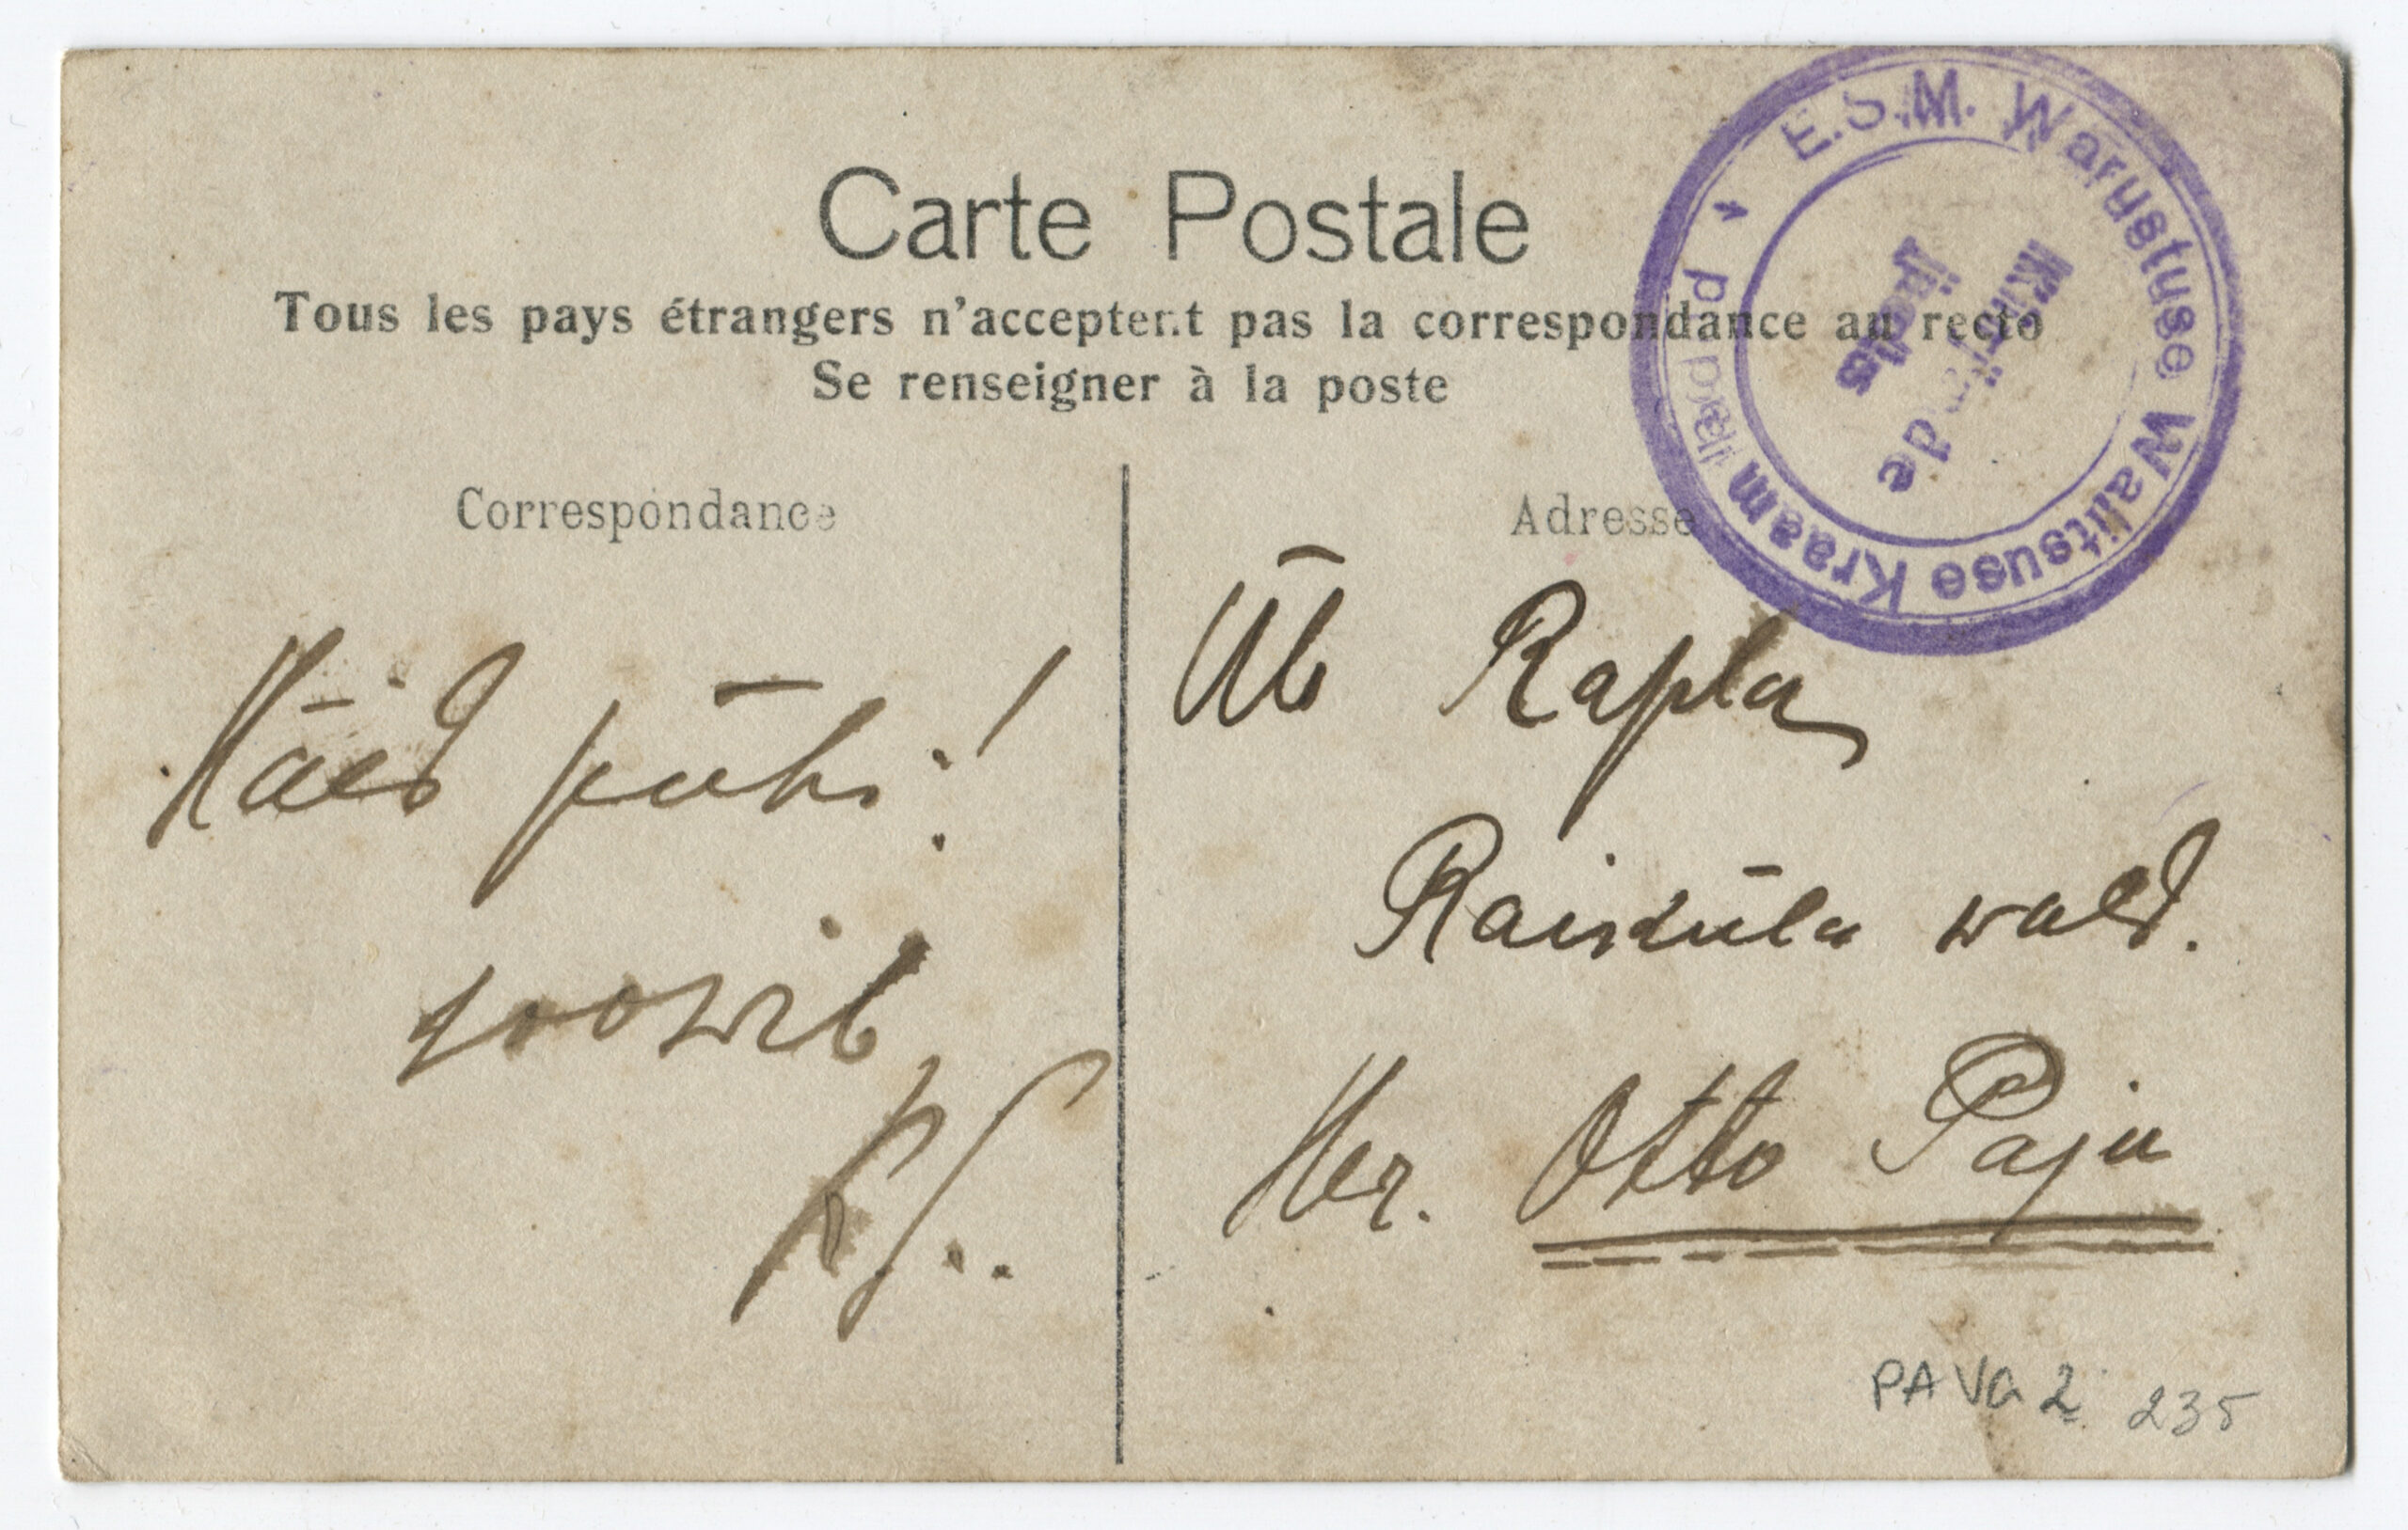 Carte Postale
Tous les pays étrangers n'acceptent pas la correspondance au recto
Se renseigner à la poste
Correspondance
Häid pühi!
soowib
K. J..
Adresse
Üle Rapla
Raiküla wald.
Her. Otto Paju
E.S.M. Warustuse Walitsuse Kraam
Kirjade
PAVA 2 235